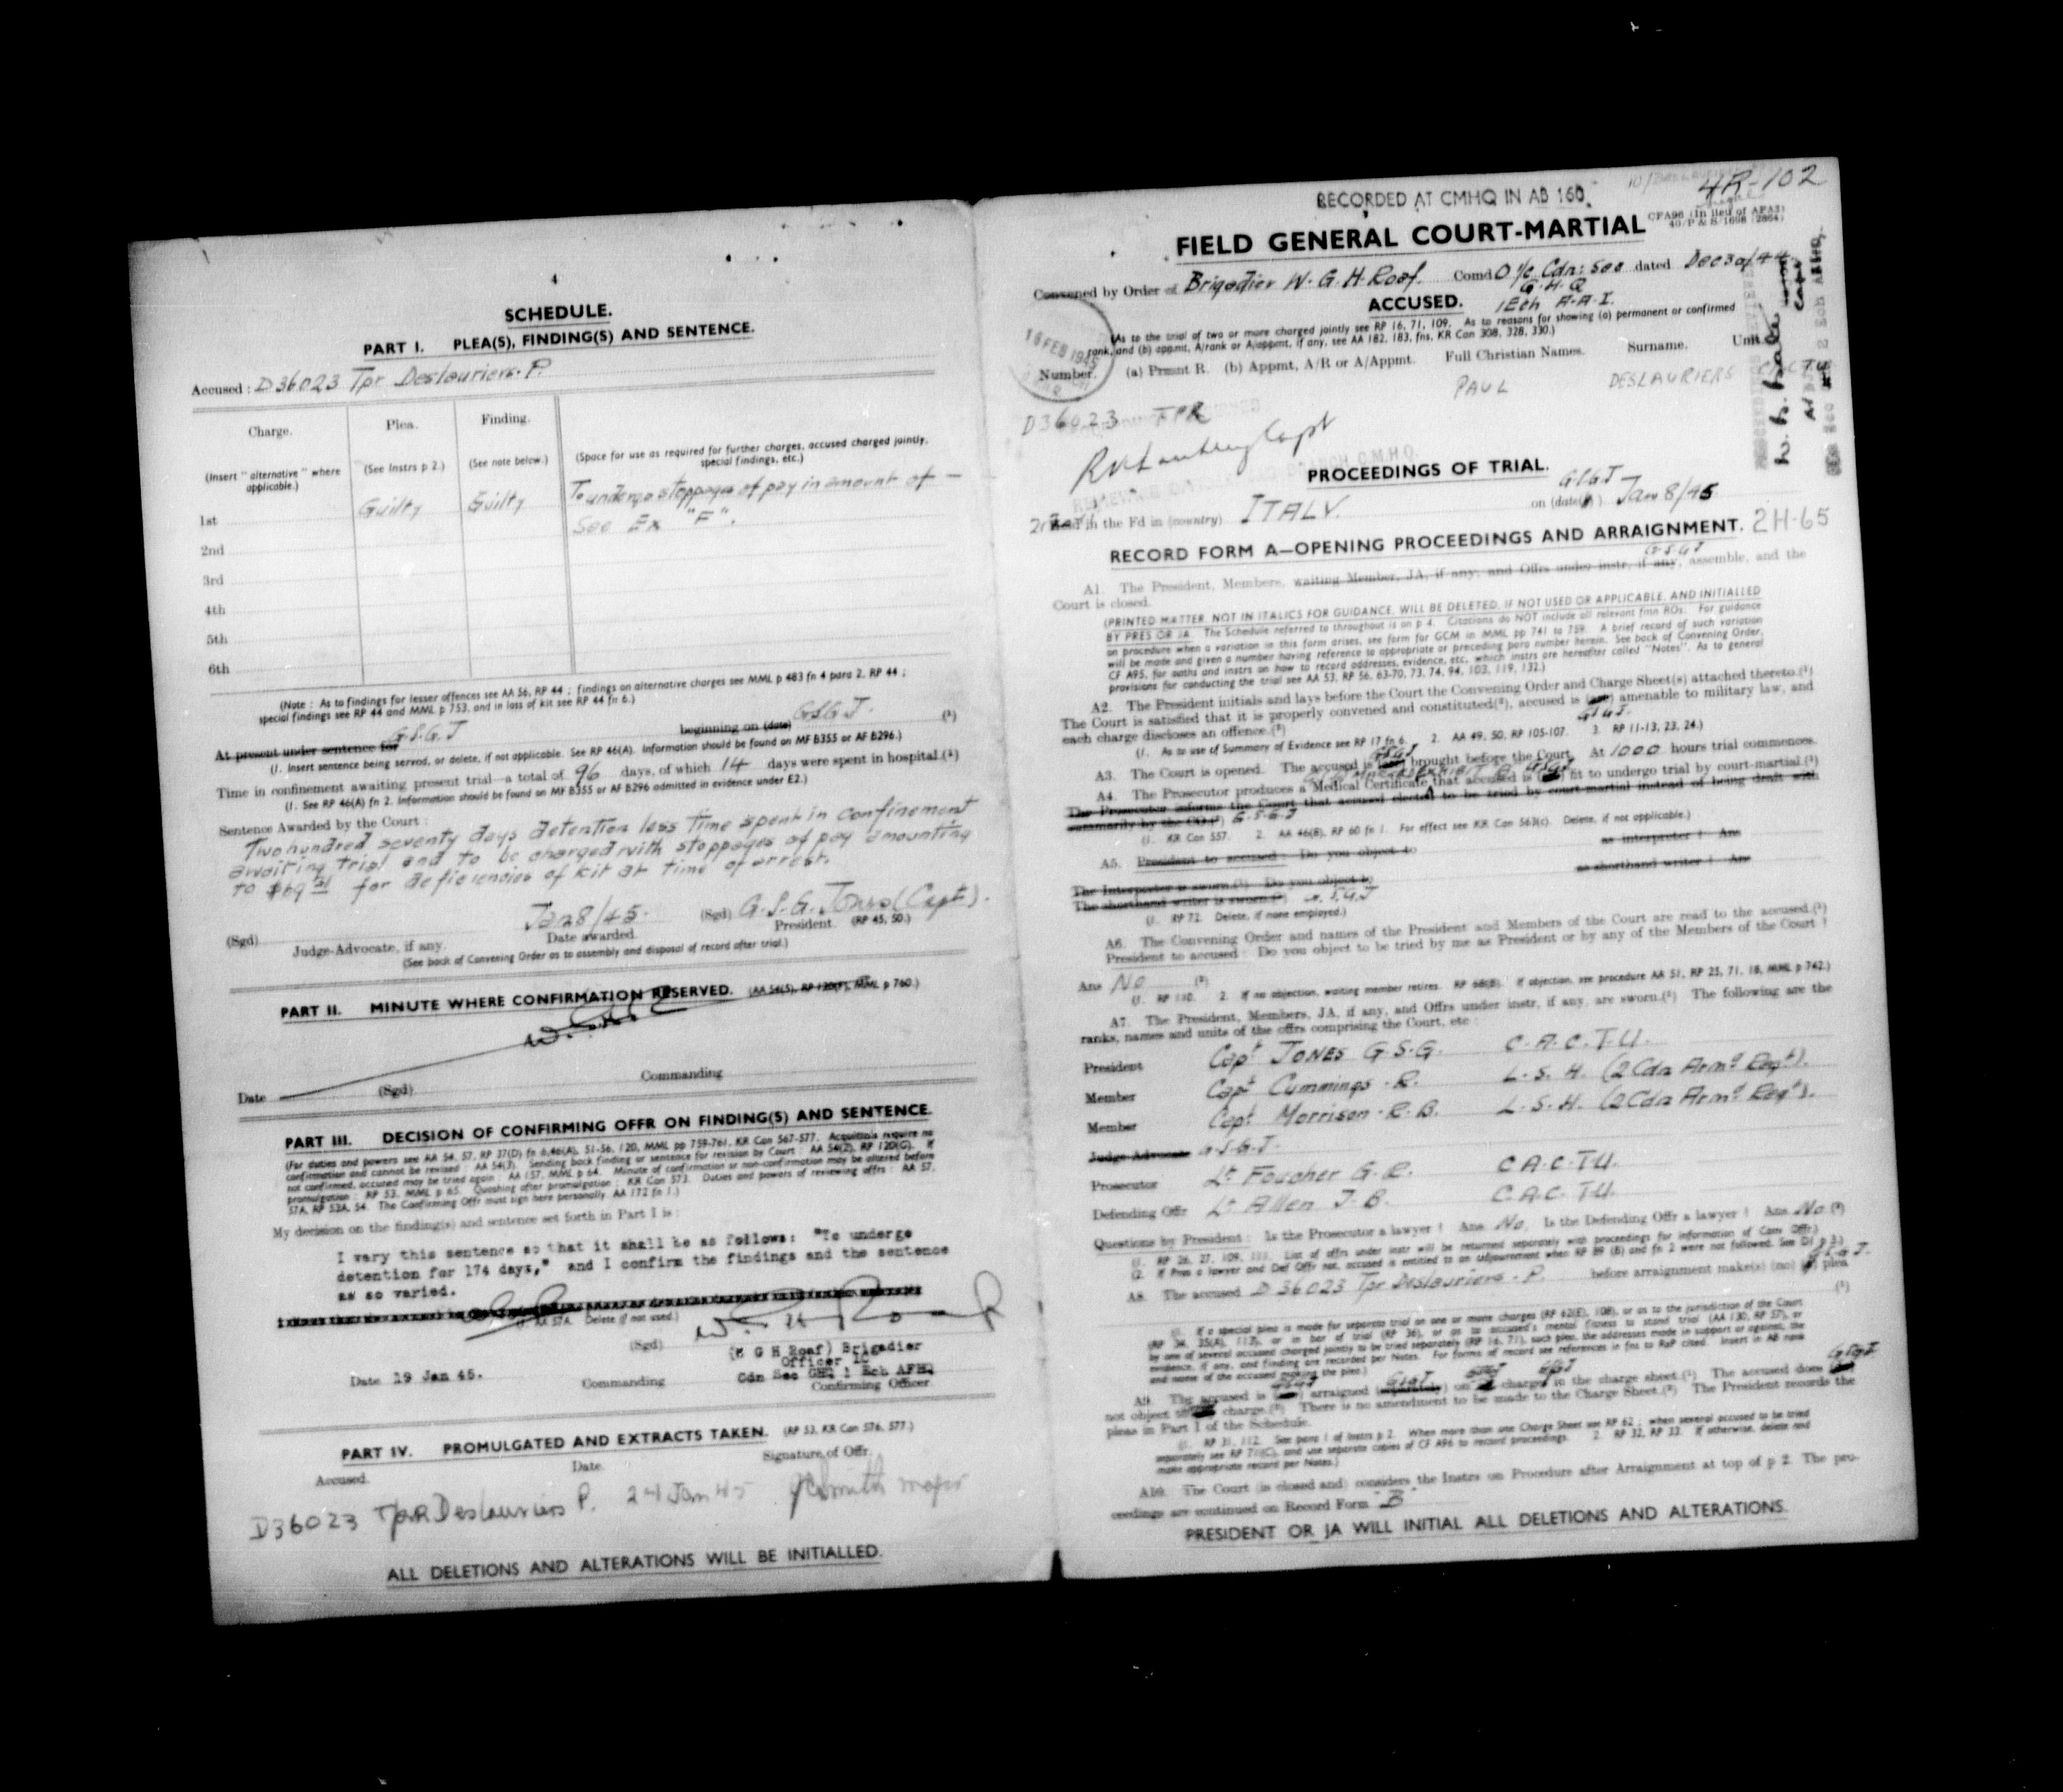 4
SCHEDULE.
PART I. PLEA(S), FINDING(S) AND SENTENCE.
Accused : D36023 Tpr Deslauriers. P.
Charge. Plea. Finding.
(Insert "alternative" where applicable.) (See Instrs p 2.) (See note below.) (Space for use as required for further charges, accused charged jointly, special findings, etc.)
1st Guilty Guilty To undergo stoppages of pay in amount of —
See Ex "F".
2nd
3rd
4th
5th
6th
(Note : As to findings for lesser offences see AA 56, RP 44 ; findings on alternative charges see MML p 483 fn 4 para 2, RP 44 ;
special findings see RP 44 and MML p 753, and in loss of kit see RP 44 fn 6.)
At present under sentence for G.S.G.J beginning on (date) GSGJ. (¹)
(1. Insert sentence being served, or delete, if not applicable. See RP 46(A). Information should be found on MF B355 or AF B296.)
Time in confinement awaiting present trial—a total of 96 days, of which 14 days were spent in hospital.(¹)
(1. See RP 46(A) fn 2. Information should be found on MF B355 or AF B296 admitted in evidence under E2.)
Sentence Awarded by the Court :
Two hundred seventy days detention less time spent in confinement
awaiting trial and to be charged with stoppages of pay amounting
to $69 for deficiencies of kit at time of arrest.
Jan 8/45. (Sgd) G.S.G. Jones (Capt).
(Sgd) Judge-Advocate, if any. Date awarded. President. (RP 45, 50.)
(See back of Convening Order as to assembly and disposal of record after trial.)
PART II. MINUTE WHERE CONFIRMATION RESERVED. (AA 54(5), RP 120(F), MML p 760.)
Date (Sgd) Commanding
PART III. DECISION OF CONFIRMING OFFR ON FINDING(S) AND SENTENCE.
(For duties and powers see AA 54, 57, RP 37(D) fn 6,46(A), 51-56, 120, MML pp 759-761, KR Can 567-577. Acquittals require no
confirmation and cannot be revised : AA 54(3). Sending back finding or sentence for revision by Court : AA 54(2), RP 120(G). If
not confirmed, accused may be tried again : AA 157, MML p 64. Minute of confirmation or non-confirmation may be altered before
promulgation : RP 53, MML p 65. Quashing after promulgation : KR Can 573. Duties and powers of reviewing offrs : AA 57,
57A, RP 53A, 54. The Confirming Offr must sign here personally. AA 172 fn 1.)
My decision on the finding(s) and sentence set forth in Part I is :
I vary this sentence so that it shall be as follows: "To undergo
detention for 174 days," and I confirm the findings and the sentence
as so varied.
(1. AA 57A. Delete if not used.)
(Sgd)
(W G H Roaf) Brigadier
Officer IC
Date 19 Jan 45. Commanding Cdn Sec GHQ 1 Ech AFHQ
Confirming Officer.
PART IV. PROMULGATED AND EXTRACTS TAKEN. (RP 53, KR Can 576, 577.)
Accused. Date. Signature of Offr.
D36023 Tpr Deslauriers P. 24 Jan 45 Smith major
ALL DELETIONS AND ALTERATIONS WILL BE INITIALLED.
RECORDED AT CMHQ IN AB 160.
4R-102
FIELD GENERAL COURT-MARTIAL
CFA96 (In lieu of AFA3)
40/P & S/1698 (2864)
Convened by Order of Brigadier W. G. H. Roaf. Comd O i/c Cdn: Sec dated Dec 30/44
G.H.Q
1Ech A.A.I.
ACCUSED.
(As to the trial of two or more charged jointly see RP 16, 71, 109. As to reasons for showing (a) permanent or confirmed
rank, and (b) appmt, A/rank or A/appmt, if any, see AA 182, 183, fns, KR Can 308, 328, 330.)
Number. (a) Prmnt R. (b) Appmt, A/R or A/Appmt. Full Christian Names. Surname. Unit.
D36023 TPR PAUL DESLAURIERS
FEB 1945
PROCEEDINGS OF TRIAL.
in the Fd in (country) ITALY. on (date) GSGJ Jan 8/45
2H-65
RECORD FORM A—OPENING PROCEEDINGS AND ARRAIGNMENT.
G.S.G.J
A1. The President, Members, waiting Member, JA, if any, and Offrs under instr, if any, assemble, and the
Court is closed.
(PRINTED MATTER NOT IN ITALICS FOR GUIDANCE, WILL BE DELETED, IF NOT USED OR APPLICABLE, AND INITIALLED
BY PRES OR JA. The Schedule referred to throughout is on p 4. Citations do NOT include all relevant fmn ROs. For guidance
on procedure when a variation in this form arises, see form for GCM in MML pp 741 to 759. A brief record of such variation
will be made and given a number having reference to appropriate or preceding para number herein. See back of Convening Order,
CF A95, for oaths and instrs on how to record addresses, evidence, etc, which instrs are hereafter called "Notes". As to general
provisions for conducting the trial see AA 53, RP 56, 63-70, 73, 74, 94, 103, 119, 132.)
A2. The President initials and lays before the Court the Convening Order and Charge Sheet(s) attached thereto.(¹)
The Court is satisfied that it is properly convened and constituted(²), accused is (are) amenable to military law, and
each charge discloses an offence.(³)
(1. As to use of Summary of Evidence see RP 17 fn 6. 2. AA 49, 50, RP 105-107. 3. RP 11-13, 23, 24.)
A3. The Court is opened. The accused is brought before the Court. At 1000 hours trial commences.
A4. The Prosecutor produces a Medical Certificate that accused is fit to undergo trial by court-martial.(¹)
The Prosecutor informs the Court that accused elected to be tried by court-martial instead of being dealt with
summarily by the CO.(²) G.S.G.J
(1. KR Can 557. 2. AA 46(8), RP 60 fn 1. For effect see KR Can 563(c). Delete, if not applicable.)
A5. President to accused : Do you object to as interpreter ? Ans
The Interpreter is sworn.(¹) Do you object to as shorthand writer ? Ans
The shorthand writer is sworn.(¹) G.S.G.J
(1. RP 72. Delete, if none employed.)
A6. The Convening Order and names of the President and Members of the Court are read to the accused.(¹)
President to accused : Do you object to be tried by me as President or by any of the Members of the Court ?
Ans No (²)
(1. RP 110. 2. If no objection, waiting member retires. RP 68(B). If objection, see procedure AA 51, RP 25, 71, 18, MML p 742.)
A7. The President, Members, JA, if any, and Offrs under instr, if any, are sworn.(¹) The following are the
ranks, names and units of the offrs comprising the Court, etc :
President Capt JONES G.S.G. C.A.C.T.U.
Member Capt Cummings .R. L.S.H. (2 Cdn Armd Regt).
Member Capt Morrison .R.B. L.S.H. (2 Cdn Armd Regt).
Judge-Advocate G.S.G.J.
Prosecutor Lt Foucher G.R. C.A.C.T.U.
Defending Offr Lt Allen J.B. C.A.C.T.U.
Questions by President : Is the Prosecutor a lawyer ? Ans No. Is the Defending Offr a lawyer ? Ans No (²)
(1. RP 26, 27, 109, 111. List of offrs under instr will be returned separately with proceedings for information of Conv Offr.)
A8. The accused D 36023 Tpr Deslauriers. P. before arraignment make(s) (no) plea
(¹)
A9. The accused is arraigned (separately) on charge in the charge sheet.(¹) The accused does
not object to charge.(²) There is no amendment to be made to the Charge Sheet.(²) The President records the
pleas in Part I of the Schedule.
(1. RP 31, 112. See para 1 of Instrs p 2. When more than one Charge Sheet see RP 62 ; when several accused to be tried
separately see RP 71(C), and use separate copies of CF A96 to record proceedings. 2. RP 32, RP 33. If otherwise, delete and
make appropriate record per Notes.)
A10. The Court (is closed and) considers the Instrs on Procedure after Arraignment at top of p 2. The pro-
ceedings are continued on Record Form "B"
PRESIDENT OR JA WILL INITIAL ALL DELETIONS AND ALTERATIONS.